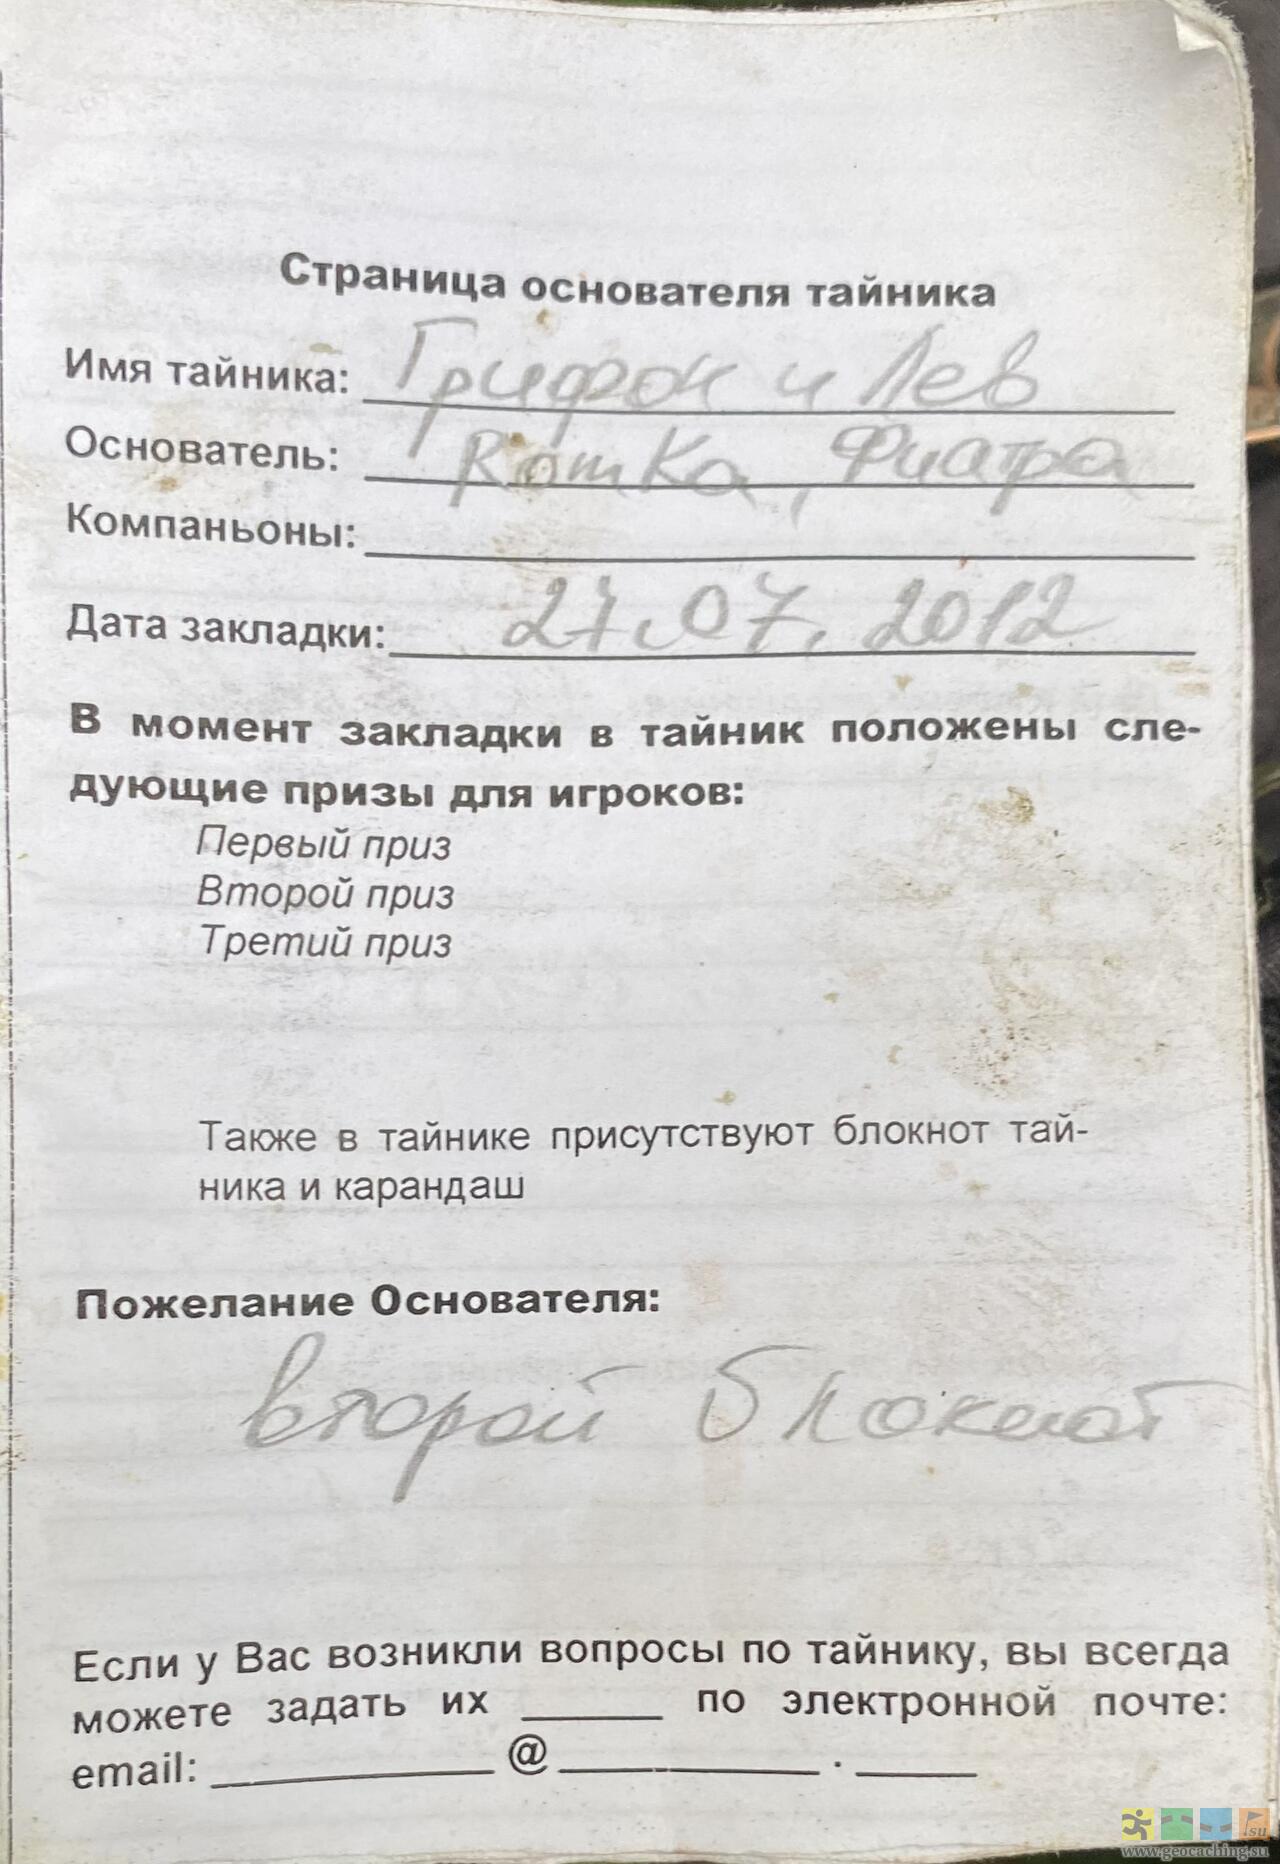 Страница основателя тайника
Имя тайника: Грифон и Лев
Основатель: Кошка, Фиатра
Компаньоны:
Дата закладки: 27.07.2012
В момент закладки в тайник положены сле-
дующие призы для игроков:
Первый приз
Второй приз
Третий приз
Также в тайнике присутствуют блокнот тай-
ника и карандаш
Пожелание Основателя:
второй блокнот
Если у Вас возникли вопросы по тайнику, вы всегда
можете задать их ______ по электронной почте:
email: ____________ @ ___________ . _____
.su
www.geocaching.su